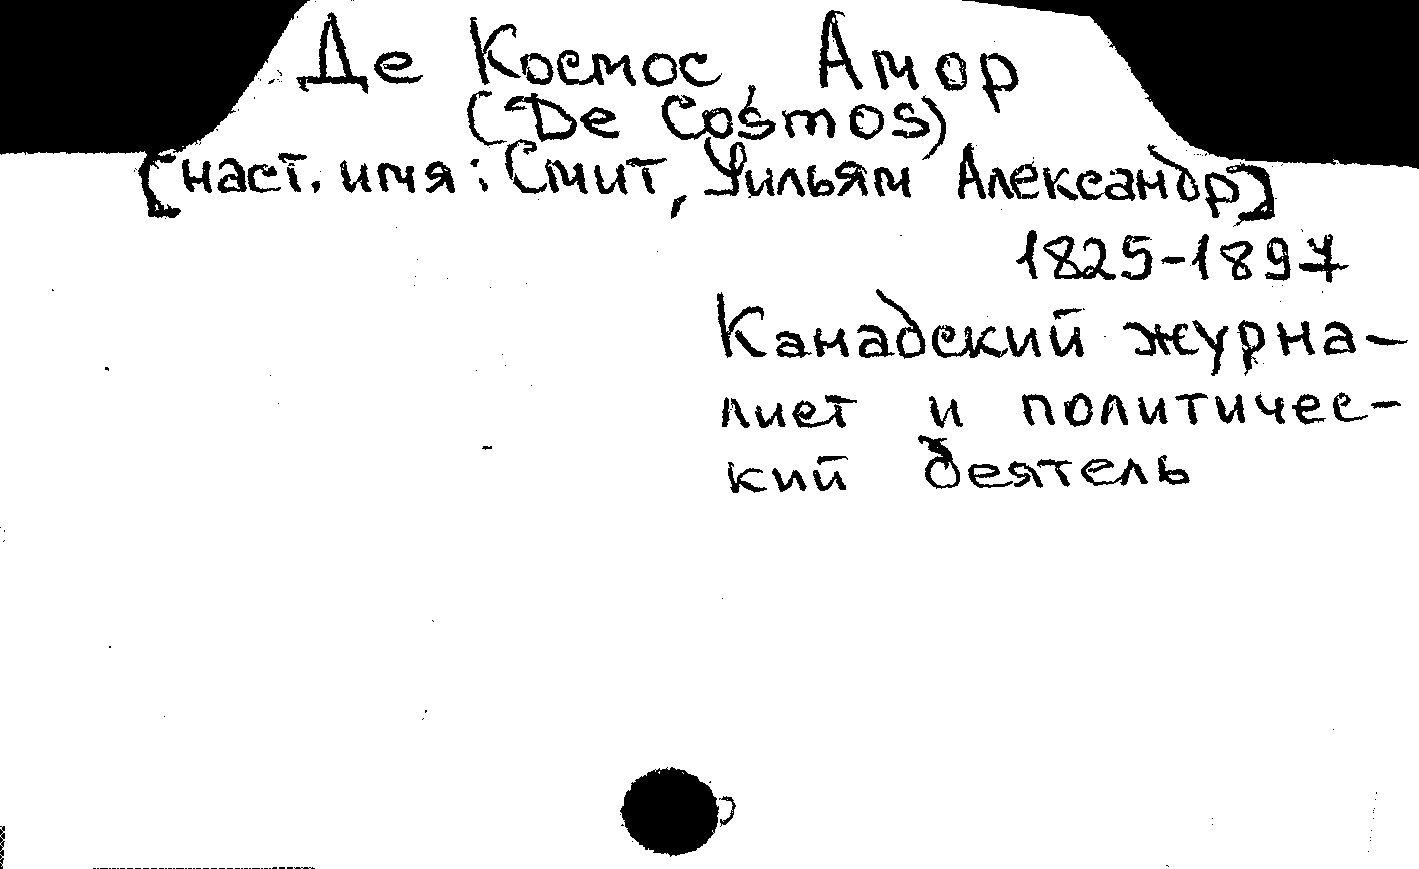 Де Космос, Амор
(De Cosmos)
[наст. имя: Смит, Уильям Александр]
1825-1897
Канадский журна-
лист и политичес-
кий деятель